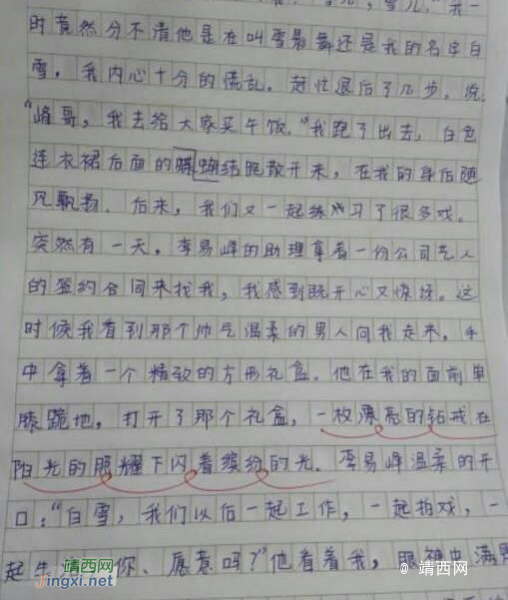 雪儿，雪儿。"我一
时竟然分不清他是在叫雪影舞还是我的名字白
雪，我内心十分的慌乱。赶忙退后了几步，说
"峰哥，我去给大家买午饭。"我跑了出去，白色
连衣裙后面的蝴蝶结跑散开来，在我的身后随
风飘扬。后来，我们又一起练习了很多戏。
突然有一天，李易峰的助理拿着一份公司艺人
的签约合同来找我，我感到既开心又惊讶。这
时候我看到那个帅气温柔的男人向我走来，手
中拿着一个精致的方形礼盒。他在我的面前单
膝跪地，打开了那个礼盒，一枚漂亮的钻戒在
阳光的照耀下闪着缤纷的光。李易峰温柔的开
口："白雪，我们以后一起工作，一起拍戏，一
起生你、愿意吗？"他看着我，眼神中满
靖西网
jingxi.net
@ 靖西网